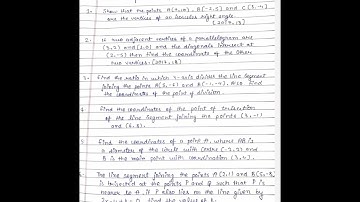 1. Show that the points A(7,10), B(-2,5) and C(3,-4)
are the vertices of an isosceles right angle.
2. If two adjacent vertices of a parallelogram are
(3,2) and (1,0) and the diagonals intersect at
(2,-5) then find the coordinates of the other
two vertices.
3. Find the ratio in which y-axis divides the line Segment
joining the points A(5,-6) and B(-1,-4). Also find
the coordinates of the point of division.
4. Find the coordinates of the point of trisection
of the line segment joining the points (3,-1)
and (6,8).
5. Find the coordinates of a point A, where AB is
a diameter of the circle with centre (-2,2) and
B is the point with coordinates (3,4).
6. The line segment joining the points A(2,1) and B(5,-8)
is trisected at the points P and Q such that P is
nearer to A. if P also lies on the line given by
2x-y+k=0. find the value of k.